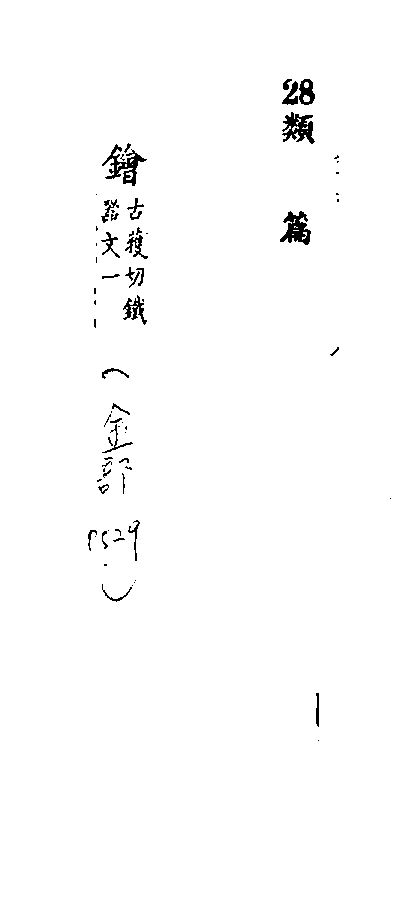 28類篇
鑹古獲切鐵
器文一
（金部
P529）